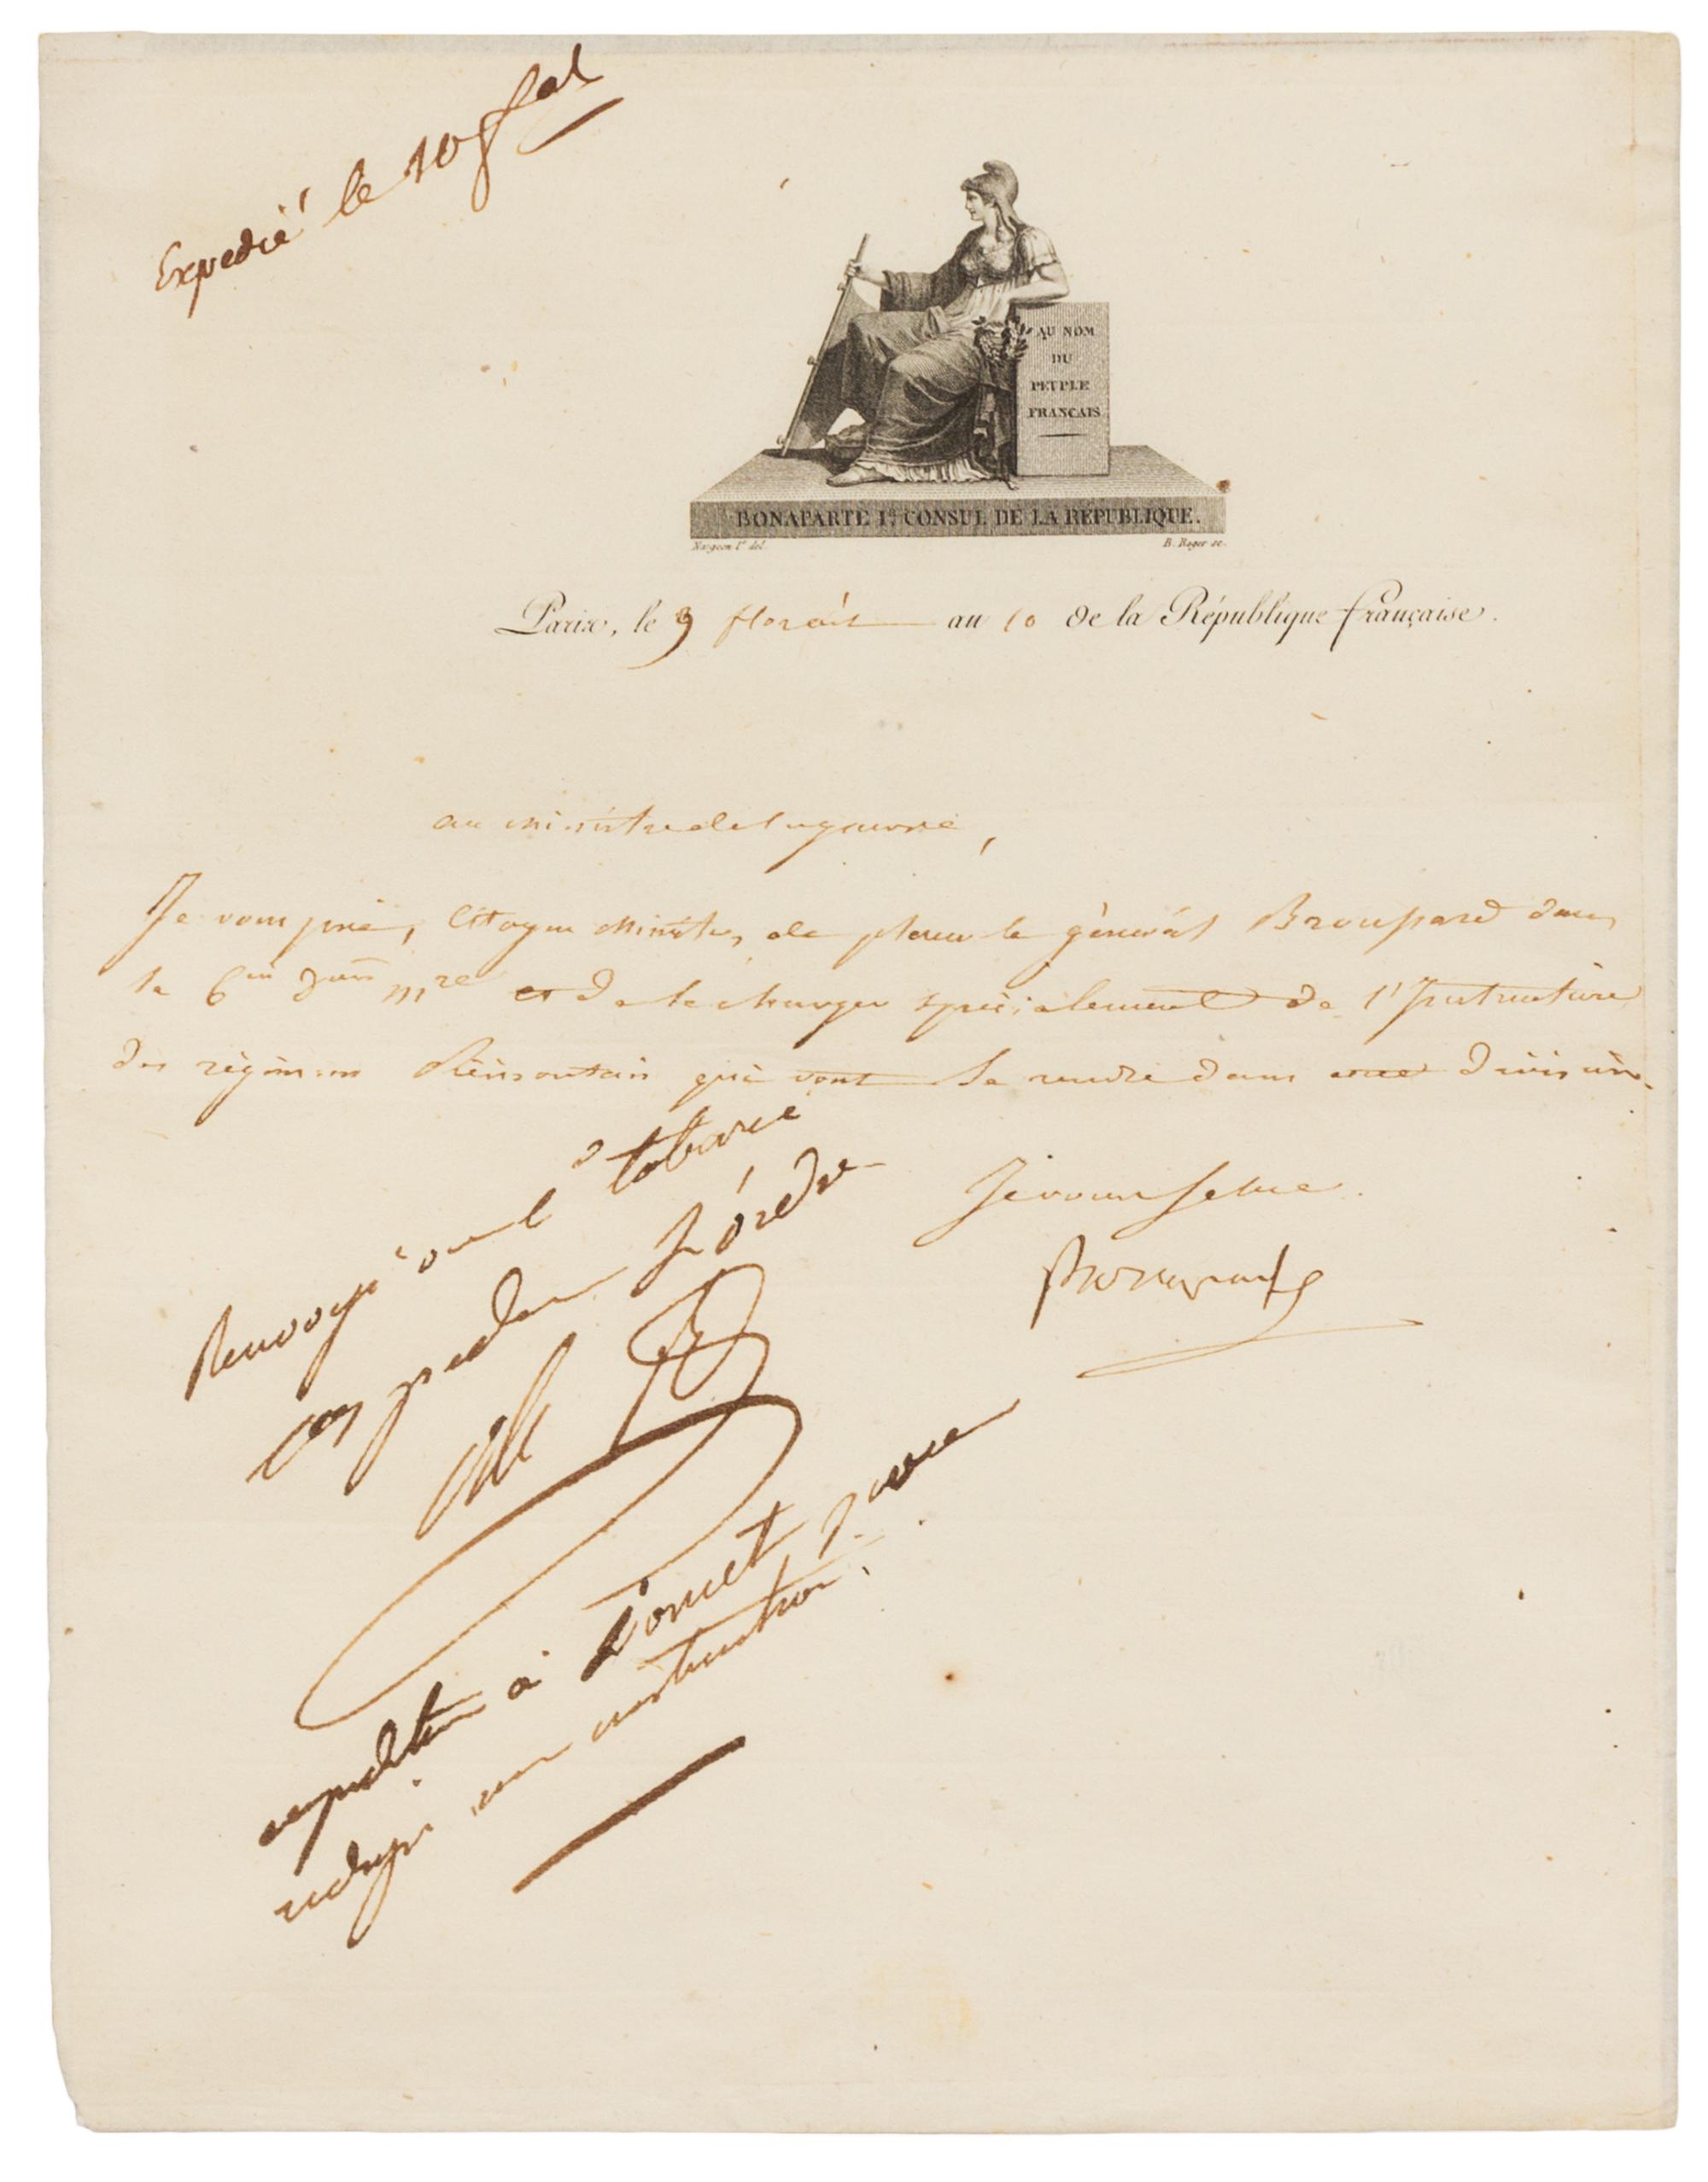 Expedié le 10 fal
AU NOM
DU
PEUPLE
FRANÇAIS
BONAPARTE 1er CONSUL DE LA REPUBLIQUE.
Naigeon l'é del B. Roger sc.
Paris, le 9 floréal an 10 de la République française.
au ministre de la guerre,
Je vous prie, Citoyen Ministre, de placer le général Broussard dans
la 6me Don mre et de le charger spécialement de l'Instruction
des régimens Piémontais qui vont se rendre dans cette division.
Je vous salue.
Bonaparte
Renvoyé au Cl à
expedier l'ordre
expedition à pour
rediger une instruction.